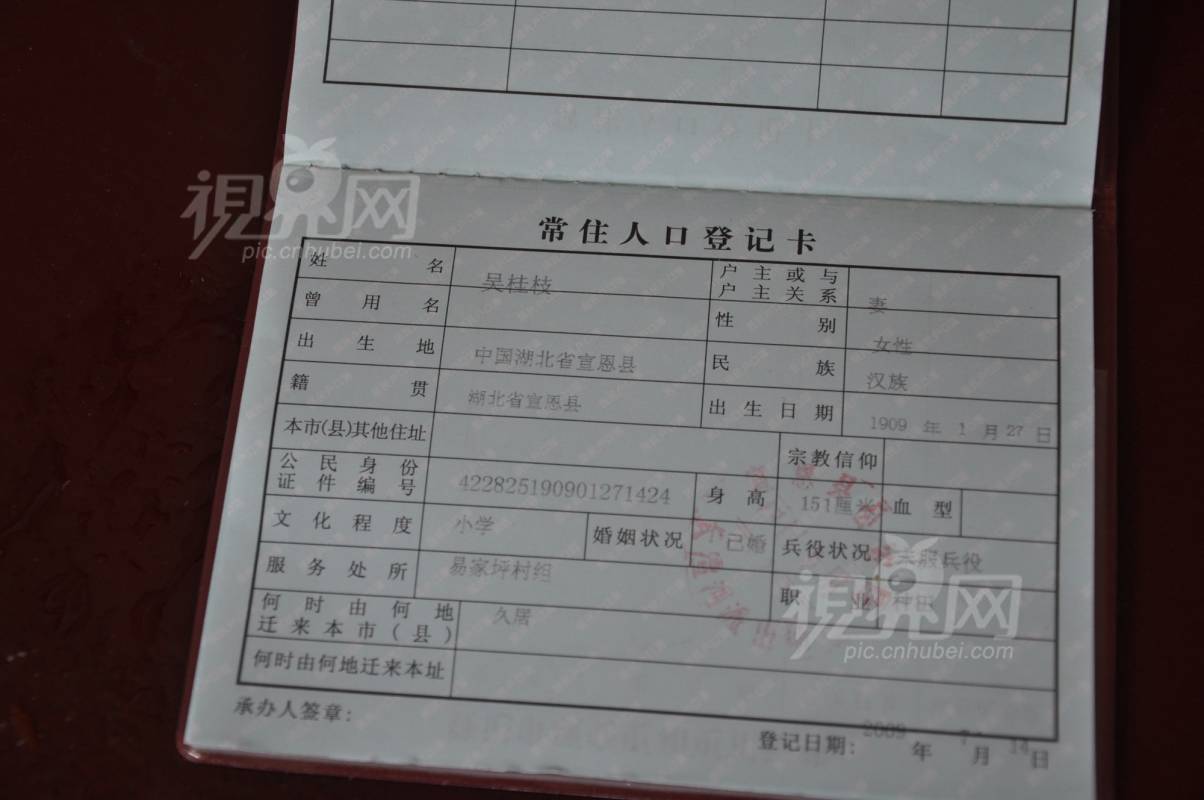 視界网
pic.cnhubei.com
常住人口登记卡
姓名 吴桂枝 户主或与户主关系 妻
曾用名 性别 女性
出生地 中国湖北省宣恩县 民族 汉族
籍贯 湖北省宣恩县 出生日期 1909 年 1 月 27 日
本市(县)其他住址 宗教信仰
公民身份证件编号 422825190901271424 身高 151厘米 血型
文化程度 小学 婚姻状况 已婚 兵役状况 未服兵役
服务处所 易家坪村组 职业 种田
何时由何地迁来本市(县) 久居
何时由何地迁来本址
視界网
pic.cnhubei.com
承办人签章:
登记日期: 2009 年 7 月 14 日